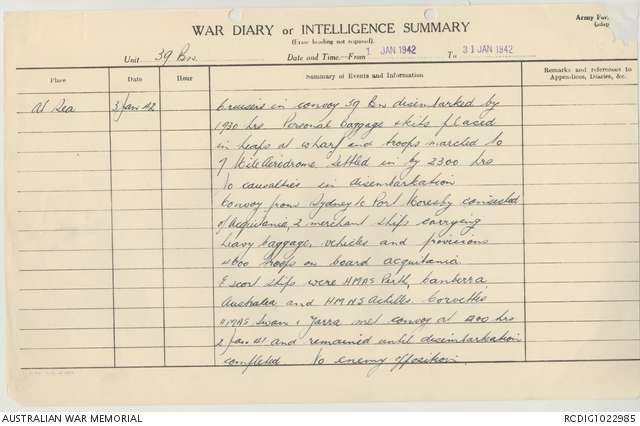 WAR DIARY or INTELLIGENCE SUMMARY
Army For
(Erase heading not required).
Unit 39 Bn. Date and Time.—From 1 JAN 1942 To 31 JAN 1942
Place Date Hour Summary of Events and Information Remarks and references to Appendices, Diaries, &c.
At Sea 3 Jan 42 Cruisers in convoy 39 Bn disembarked by
1930 hrs Personal baggage & kits placed
in heaps at wharf and troops marched to
7 Mile Aerodrome. Settled in by 2300 hrs
No causalties in disembarkation
Convoy from Sydney to Port Moresby consisted
of Acquitania, 2 merchant ships carrying
heavy baggage, vehicles and provisions
4600 troops on board acquitania
Escort ships were HMAS Perth, Canberra
Australia and HMNS Achilles. Corvettes
HMAS Swan & Yarra met convoy at 400 hrs
2 Jan 41 and remained until disembarkation
completed. No enemy opposition.
AUSTRALIAN WAR MEMORIAL
RCDIG1022985